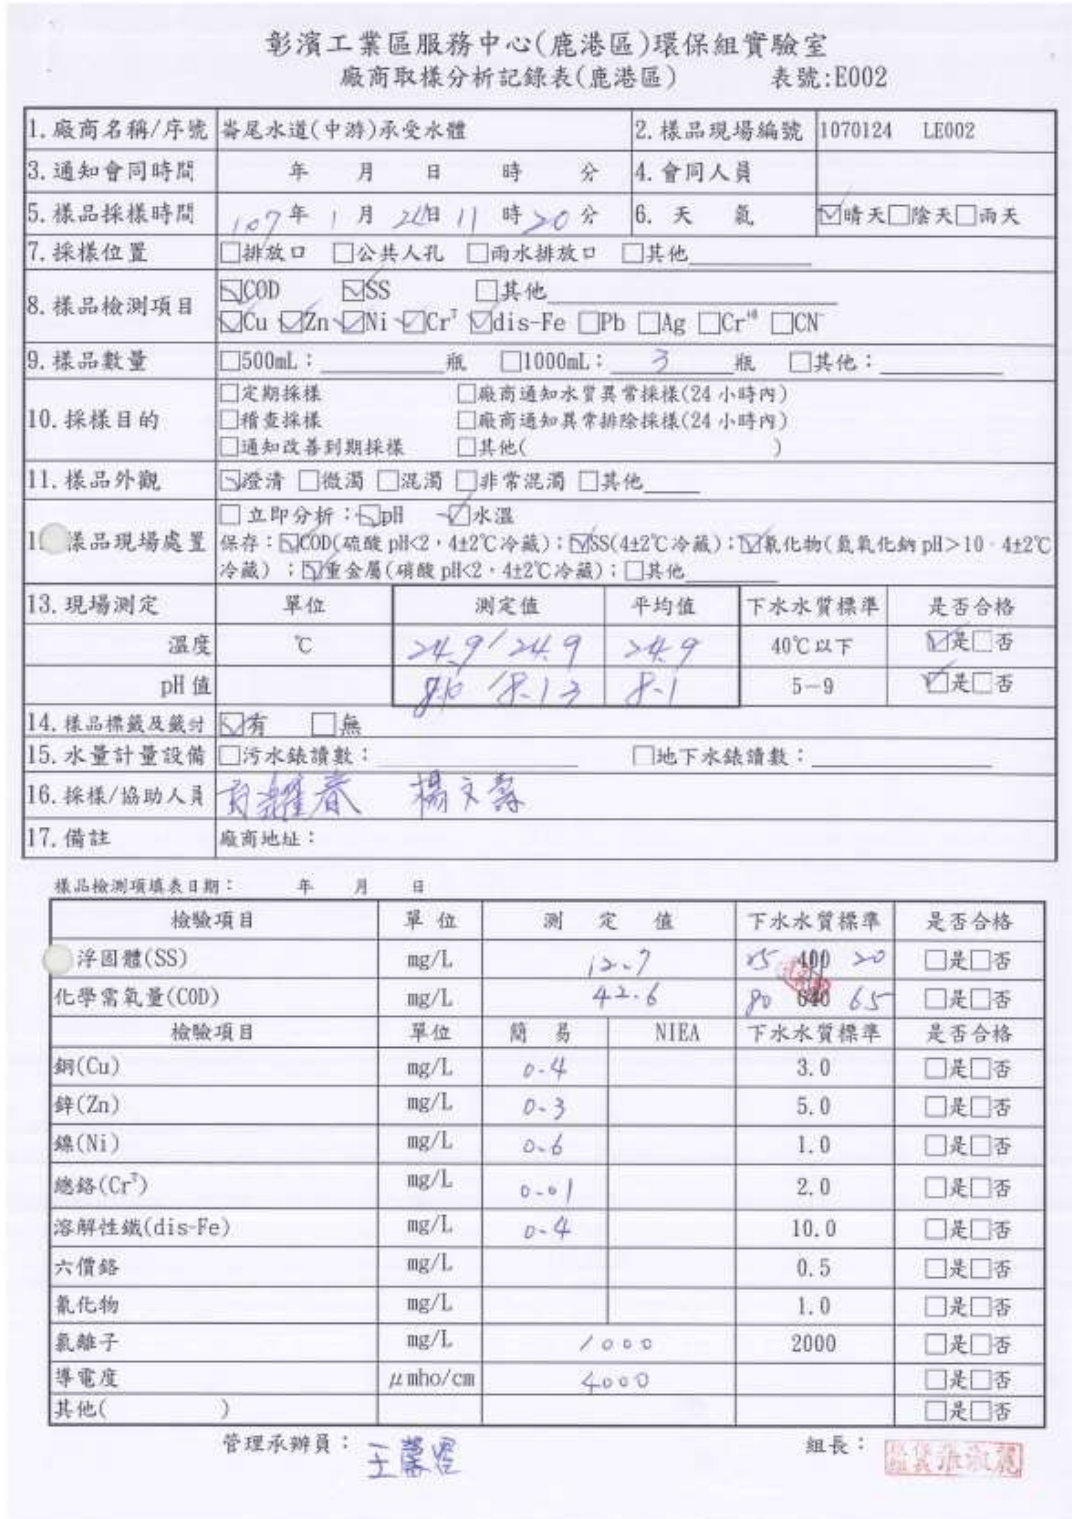 彰濱工業區服務中心(鹿港區)環保組實驗室
廠商取樣分析記錄表(鹿港區) 表號:E002
1.廠商名稱/序號 崙尾水道(中游)承受水體 2.樣品現場編號 1070124 LE002
3.通知會同時間 年 月 日 時 分 4.會同人員
5.樣品採樣時間 107年 1月 24日 11時 20分 6.天 氣 ☑晴天□陰天□雨天
7.採樣位置 □排放口 □公共人孔 □雨水排放口 □其他
8.樣品檢測項目 ☑COD ☑SS □其他
☑Cu ☑Zn ☑Ni ☑Crᵀ ☑dis-Fe □Pb □Ag □Cr⁺⁶ □CN⁻
9.樣品數量 □500mL: 瓶 □1000mL: 3 瓶 □其他:
10.採樣目的 □定期採樣 □廠商通知水質異常採樣(24小時內)
□稽查採樣 □廠商通知異常排除採樣(24小時內)
□通知改善到期採樣 □其他( )
11.樣品外觀 ☑澄清 □微濁 □混濁 □非常混濁 □其他
□立即分析:☑pH ☑水溫
樣品現場處置 保存:☑COD(硫酸pH<2,4±2℃冷藏);☑SS(4±2℃冷藏);☑氰化物(氫氧化鈉pH>10,4±2℃
冷藏);☑重金屬(硝酸pH<2,4±2℃冷藏);□其他
13.現場測定 單位 測定值 平均值 下水水質標準 是否合格
溫度 ℃ 24.9/24.9 24.9 40℃以下 ☑是□否
pH值 /8.13 8.1 5-9 ☑是□否
14.樣品標籤及籤封 ☑有 □無
15.水量計量設備 □污水錶讀數: □地下水錶讀數:
16.採樣/協助人員 春 楊文壽
17.備註 廠商地址:
樣品檢測項填表日期: 年 月 日
檢驗項目 單位 測定值 下水水質標準 是否合格
浮固體(SS) mg/L 12.7 25 400 20 □是□否
化學需氧量(COD) mg/L 42.6 80 640 65 □是□否
檢驗項目 單位 簡易 NIEA 下水水質標準 是否合格
銅(Cu) mg/L 0.4 3.0 □是□否
鋅(Zn) mg/L 0.3 5.0 □是□否
鎳(Ni) mg/L 0.6 1.0 □是□否
總鉻(Crᵀ) mg/L 0.01 2.0 □是□否
溶解性鐵(dis-Fe) mg/L 0.4 10.0 □是□否
六價鉻 mg/L 0.5 □是□否
氰化物 mg/L 1.0 □是□否
氯離子 mg/L 1000 2000 □是□否
導電度 μmho/cm 4000 □是□否
其他( ) □是□否
管理承辦員: 王 組長: